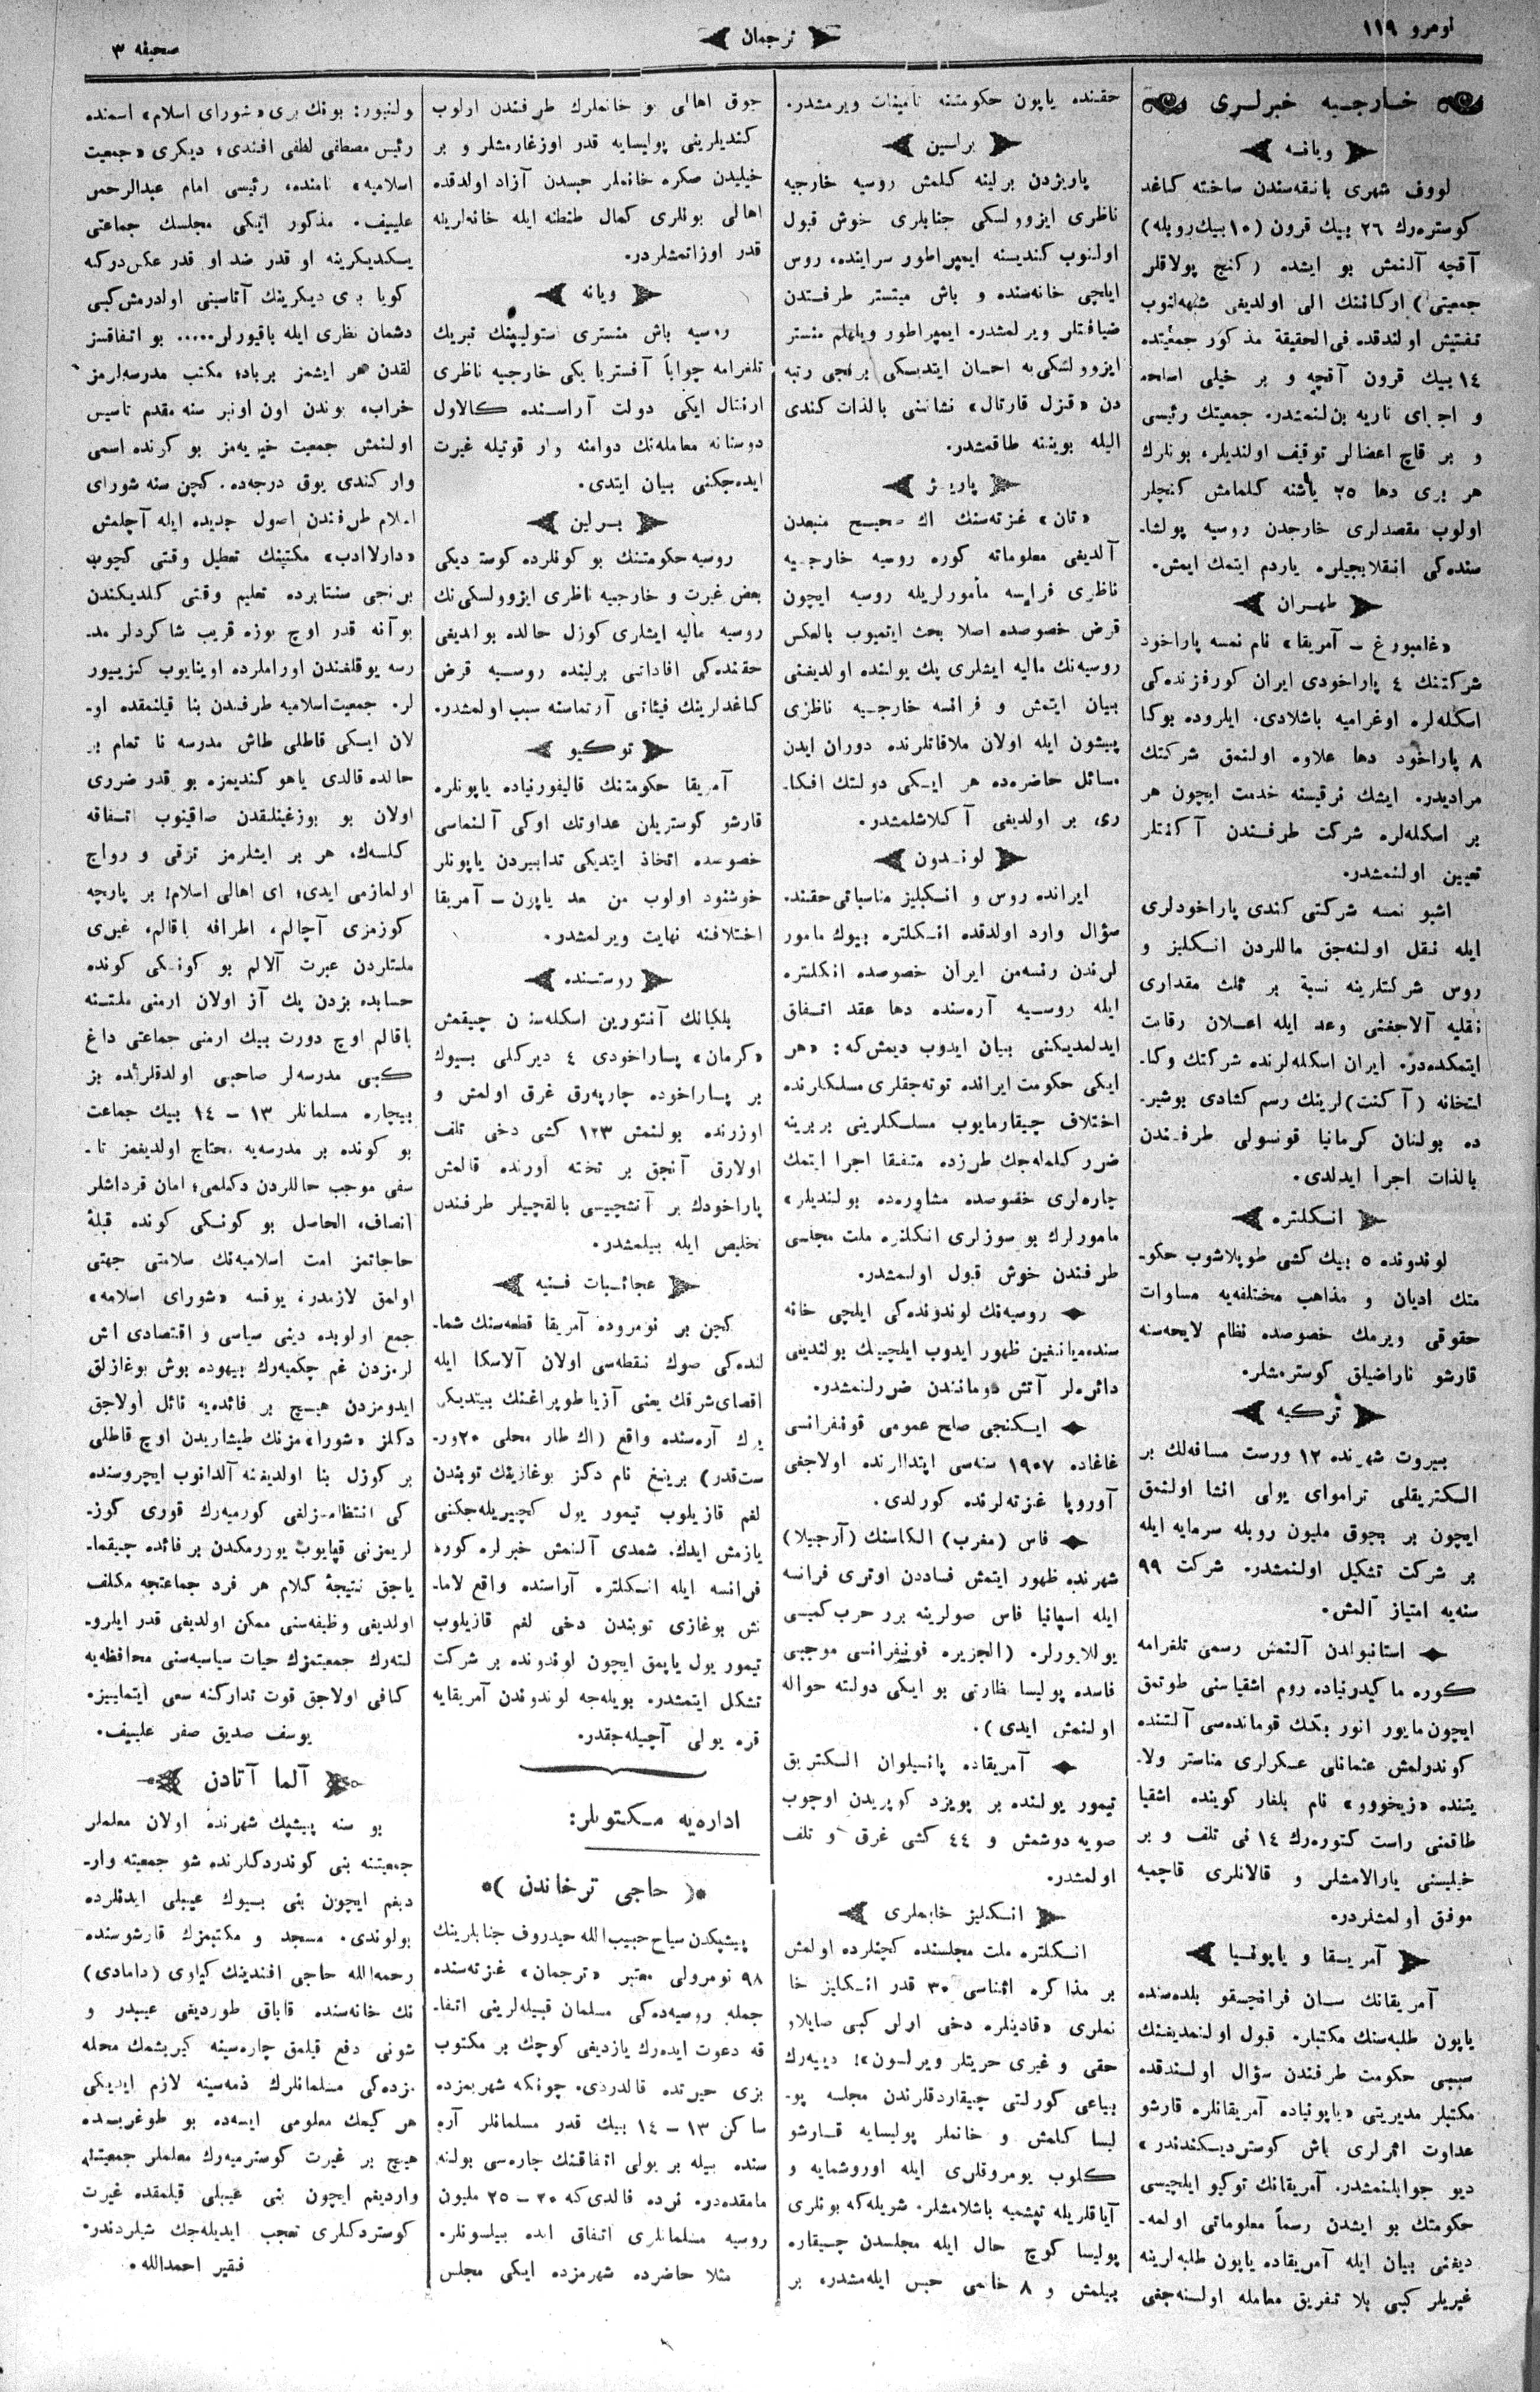 نومرو ١١٩
ترجمان
صحيفه ٣
خارجيه خبرلرى
ويانه
لووف شهرى بانقه‌سندن ساخته كاغد
كوستره‌رك ٢٦ بيك قرون (١٠ بيك روبله)
آقچه آلنمش بو ايشده (كنج پولاقلر
جمعيتى) اركاننك الى اولديغى شبهه‌لنوب
تفتيش اولندقده فى الحقيقة مذكور جمعيتده
١٤ بيك قرون آقچه و بر خيلى اسلحه
و اجزاى ناريه بولنمشدر. جمعيتك رئيسى
و بر قاچ اعضالر توقيف اولنديلر، بونلرك
هر برى دها ٢٥ ياشنه كلمامش كنجلر
اولوب مقصدلرى خارجدن روسيه پولشا-
سنده‌كى انقلابجيلره ياردم ايتمك ايمش.
طهران
«غامبورغ – آمريقا» نام نمسه پاراخود
شركتنك ٤ پاراخودى ايران كورفزنده‌كى
اسكله‌لره اوغرامیه باشلادى. ايلروده بوكا
٨ پاراخود دها علاوه اولنمق شركتك
مراديدر. ايشك ترقيسنه خدمت ايچون هر
بر اسكله‌لره شركت طرفندن آكنتلر
تعيين اولنمشدر.
اشبو نمسه شركتى كندى پاراخودلرى
ايله نقل اولنه‌جق ماللردن انكليز و
روس شركتلرينه نسبة بر ثلث مقدارى
نقليه آلاجغنى وعد ايله اعلان رقابت
ايتمكده‌در. ايران اسكله‌لرنده شركتك وكا-
لتخانه (آكنت) لرينك رسم كشادى بوشير-
ده بولنان كرمانيا قونسولى طرفندن
بالذات اجرا ايدلدى.
انكلتره
لوندونده ٥ بيك كشى طوپلاشوب حكو-
متك اديان و مذاهب مختلفه‌يه مساوات
حقوقى ويرمك خصوصده نظام لايحه‌سنه
قارشو ناراضيلق كوسترمشلر.
تركيه
بيروت شهرنده ١٢ ورست مسافه‌لك بر
الكتريقلى ترامواى يولى انشا اولنمق
ايچون بر بچوق مليون روبله سرمايه ايله
بر شركت تشكيل اولنمشدر. شركت ٩٩
سنه‌يه امتياز آلمش.
استانبولدن آلنمش رسمى تلغرامه
كوره ماكيدونياده روم اشقياسنى طوتمق
ايچون مايور انور بكك قومانده‌سى آلتنده
كوندرلمش عثمانلى عسكرلرى مناستر ولا-
يتنده «زيخووو» نام بلغار كوينده اشقيا
طاقمنى راست كتوره‌رك ١٤ نى تلف و بر
خيليسنى يارالامشلر و قالانلرى قاچميه
موفق اولمشلردر.
آمريقا و ياپونيا
آمريقانك سان فرانجسقو بلده‌سنده
ياپون طلبه‌سنك مكتبلره قبول اولنمديغنك
سببى حكومت طرفندن سؤال اولندقده
مكتبلر مديريتى «ياپونياده آمريقانلره قارشو
عداوت اثرلرى باش كوسترديكندندر»
ديو جوابلنمشدر. آمريقانك توكيو ايلچيسى
حكومتك بو ايشدن رسماً معلوماتى اولمه-
ديغنى بيان ايله آمريقاده ياپون طلبه‌لرينه
غيريلر كبى بلا تفريق معامله اولنه‌جغى
حقنده ياپون حكومتنه تأمينات ويرمشدر.
برلين
پاريژدن برلينه كلمش روسيه خارجيه
ناظرى ايزوولسكى جنابلرى خوش قبول
اولنوب كنديسنه ايمپراطور سراينده، روس
ايلچى خانه‌سنده و باش مينستر طرفندن
ضيافتلر ويرلمشدر. ايمپراطور ويلهلم منستر
ايزوولسكى‌يه احسان ايتديكى برنجى رتبه
دن «قزل قارتال» نشاننى بالذات كندى
اليله بويننه طاقمشدر.
پاريژ
«تان» غزته‌سنك اك صحيح منبعدن
آلديغى معلوماته كوره روسيه خارجيه
ناظرى فرانسه مأمورلريله روسيه ايچون
قرض خصوصده اصلا بحث ايتميوب بالعكس
روسيه‌نك ماليه ايشلرى پك يولنده اولديغنى
بيان ايتمش و فرانسه خارجيه ناظرى
پيشون ايله اولان ملاقاتلرنده دوران ايدن
مسائل حاضره‌ده هر ايكى دولتك افكا-
رى بر اولديغى آكلاشلمشدر.
لوندون
ايرانده روس و انكليز مناسباتى حقنده
سؤال وارد اولدقده انكلتره بيوك مامور
لرندن رنسه‌من ايران خصوصده انكلتره
ايله روسيه آره‌سنده دها عقد اتفاق
ايدلمديكنى بيان ايدوب ديمش‌كه: «هر
ايكى حكومت ايرانده توته‌جقلرى مسلكلرنده
اختلاف چيقارمايوب مسلكلرينى بربرينه
ضرر كلمه‌جك طرزده متفقا اجرا ايتمك
چاره‌لرى خصوصده مشاوره‌ده بولنديلر»
مامورلرك بو سوزلرى انكلتره ملت مجلسى
طرفندن خوش قبول اولنمشدر.
روسيه‌نك لوندونده‌كى ايلچى خانه
سنده يانغين ظهور ايدوب ايلچينك بولنديغى
دائره‌لر آتش دوماننندن ضررلنمشدر.
ايكنجى صلح عمومى قونفرانسى
غاغاده ١٩٠٧ سنه‌سى ابتدالرنده اولاجغى
آوروپا غزته‌لرنده كورلدى.
فاس (مغرب) الكاسنك (آرجيلا)
شهرنده ظهور ايتمش فساددن اوترى فرانسه
ايله اسپانيا فاس صولرينه برر حرب كميسى
يوللايورلر. (الجزيره قونفرانسى موجبى
فاسده پوليسا نظارتى بو ايكى دولته حواله
اولنمش ايدى).
آمريقاده پانسيلوان الكتريق
تيمور يولنده بر پويزد كوپريدن اوچوب
صويه دوشمش و ٤٤ كشى غرق و تلف
اولمشدر.
انكليز خانملرى
انكلتره ملت مجلسنده كچنلرده اولمش
بر مذاكره اثناسى ٣٠ قدر انكليز خا
نملرى «قادينلره دخى ارلر كبى صايلاو
حقى و غيرى حريتلر ويرلسون»! دييه‌رك
بياعى كورلتى چيقاردقلرندن مجلسه پو-
ليسا كلمش و خانملر پوليسايه قارشو
كلوب يومروقلرى ايله اوروشمايه و
آياقلريله تپشميه باشلامشلر. شويله‌كه بونلرى
پوليسا كوچ حال ايله مجلسدن چيقاره
بيلمش و ٨ خانمى حبس ايله‌مشدر، بر
چوق اهالى بو خانملرك طرفندن اولوب
كنديلرينى پوليسايه قدر اوزغارمشلر و بر
خيليدن صكره خانملر حبسدن آزاد اولدقده
اهالى بونلرى كمال طنطنه ايله خانه‌لرينه
قدر اوزاتمشلردر.
ويانه
روسيه باش منسترى ستوليپنك تبريك
تلغرامه جواباً آفستريا يكى خارجيه ناظرى
ارنتال ايكى دولت آراسنده كالاول
دوستانه معامله‌نك دوامنه وار قوتيله غيرت
ايده‌جكنى بيان ايتدى.
برلين
روسيه حكومتنك بو كونلرده كوستـرديكى
بعض غيرت و خارجيه ناظرى ايزوولسكى‌نك
روسيه ماليه ايشلرى كوزل حالده بولديغى
حقنده‌كى افاداتى برلينده روسيه قرض
كاغدلرينك فيئاتى آرتماسنه سبب اولمشدر.
توكيو
آمريقا حكومتنك قاليفورنياده ياپونلره
قارشو كوستريلن عداوتك اوكى آلنماسى
خصوصده اتخاذ ايتديكى تدابيردن ياپونلر
خوشنود اولوب من بعد ياپون – آمريقا
اختلافنه نهايت ويرلمشدر.
روستنده
بلكيانك آنتورين اسكله‌سندن چيقمش
«كرمان» پاراخودى ٤ ديركلى بيوك
بر پاراخوده چارپه‌رق غرق اولمش و
اوزرنده بولنمش ١٢٣ كشى دخى تلف
اولارق آنجق بر تخته اورنده قالمش
پاراخودك بر آتشجيسى بالقچيلر طرفندن
تخليص ايله بيلمشدر.
عجائبات فنيه
كچن بر نومروده آمريقا قطعه‌سنك شما-
لنده‌كى صوك نقطه‌سى اولان آلاسكا ايله
اقصاى شرقك يعنى آزيا طوپراغنك بيتديكى
يرك آره‌سنده واقع (اك طار محلى ٢٠ ور-
ست قدر) برينغ نام دكز بوغازينك توبندن
لغم قازيلوب تيمور يول كچيريله‌جكنى
يازمش ايدك. شمدى آلنمش خبرلره كوره
فرانسه ايله انكلتره آراسنده واقع لاما-
نش بوغازى توبندن دخى لغم قازيلوب
تيمور يول ياپمق ايچون لوندونده بر شركت
تشكل ايتمشدر. بويله‌جه لوندوندن آمريقايه
قره يولى آچيله‌جقدر.
اداره‌يه مكتوبلر:
*( حاجى ترخاندن )*
پيشپكدن سياح حبيب الله حيدروف جنابلرينك
٩٨ نومرولى معتبر «ترجمان» غزته‌سنده
جمله روسيه‌ده‌كى مسلمان قبيله‌لرينى اتفا-
قه دعوت ايده‌رك يازديغى كوچك بر مكتوب
بزى حيرتده قالدردى. چونكه شهريمزده
ساكن ١٣ – ١٤ بيك قدر مسلمانلر آره
سنده بيله بر يولى اتفاقنك چاره‌سى بولنه
مامقده‌در. نرده قالدى‌كه ٢٠ – ٢٥ مليون
روسيه مسلمانلرى اتفاق ايده بيلسونلر.
مثلا حاضرده شهرمزده ايكى مجلس
ولنيور: بونك برى «شوراى اسلام» اسمنده
رئيس مصطفى لطفى افندى؛ ديكرى «جمعيت
اسلاميه» نامنده، رئيسى امام عبدالرحمن
علييف. مذكور ايكى مجلسك جماعتى
يسكديكرينه او قدر ضد او قدر عكس دركه
كويا برى ديكرينك آتاسينى اولدرمش كبى
دشمان نظرى ايله باقيورلر..... بو اتفاقسز
لقدن هر ايشمز برباد؛ مكتب مدرسه‌لرمز
خراب، بوندن اون اونبر سنه مقدم تأسيس
اولنمش جمعيت خيريه‌مز بو كونده اسمى
وار كندى يوق درجه‌ده. كچن سنه شوراى
اسلام طرفندن اصول جديده ايله آچلمش
«دارلادب» مكتبنك تعطيل وقتى كچوب
برنجى سنتابرده تعليم وقتى كلديكندن
بو آنه قدر اوچ يوزه قريب شاكردلر مد-
رسه يوقلغندن اوراملرده اوينايوب كزييور
لر. جمعيت اسلاميه طرفندن بنا قيلنمقده او-
لان ايكى قاطلى طاش مدرسه نا تمام بر
حالده قالدى ياهو كنديمزه بو قدر ضررى
اولان بو بوزغنلقدن صاقينوب اتفاقه
كلسه‌ك، هر بر ايشلرمز ترقى و رواج
اولمازمى ايدى؛ اى اهالى اسلام! بر پارچه
كوزمزى آچالم، اطرافه باقالم، غيرى
ملتلردن عبرت آلالم بو كونكى كونده
حسابده بزدن پك آز اولان ارمنى ملتنه
باقالم اوچ دورت بيك ارمنى جماعتى داغ
كبى مدرسه‌لر صاحبى اولدقلرنده بز
بيچاره مسلمانلر ١٣ – ١٤ بيك جماعت
بو كونده بر مدرسه‌يه محتاج اولديغمز تأ-
سفى موجب حاللردن دكلمى؛ امان قرداشلر
انصاف، الحاصل بو كونكى كونده قبلهٔ
حاجاتمز امت اسلاميه‌نك سلامتى جهتى
اولمق لازمدر، يوقسه «شوراى اسلامه»
جمع اولوبده دينى سياسى و اقتصادى اش
لرمزدن غم چكميه‌رك بيهوده بوش بوغازلق
ايدومزدن هيچ بر فائده‌يه نائل اولاجق
دكلمز «شورا»مزنك طيشاريدن اوچ قاطلى
بر كوزل بنا اولديغنه آلدانوب ايچروسنده
كى انتظامزلغى كورميه‌رك قورى كوز-
لريمزنى قپايوب يورومكدن بر فائده چيقما-
ياجق نتيجهٔ كلام هر فرد جماعتجه مكلف
اولديغى وظيفه‌سنى ممكن اولديغى قدر ايلرو-
لته‌رك جمعيتمزك حيات سياسيه‌سنى محافظه‌يه
كافى اولاجق قوت تداركنه سعى ايتمليز.
يوسف صديق صفر علييف.
آلما آتادن
بو سنه پيشپك شهرنده اولان معلملر
جمعيتنه بنى كوندردكلرنده شو جمعيته وار-
ديغم ايچون بنى بيوك عيبلى ايدنلرده
بولوندى. مسجد و مكتبمزك قارشوسنده
رحمه الله حاجى افندينك كياوى (دامادى)
نك خانه‌سنده قاباق طورديغى عيبيدر و
شونى دفع قيلمق چاره‌سينه كيريشمك محله
مزده‌كى مسلمانلرك ذمه‌سينه لازم ايديكى
هر كيمك معلومى ايسه‌ده بو طوغريسنده
هيچ بر غيرت كوسترميه‌رك معلملر جمعيتنه
وارديغم ايچون بنى عيبلى قيلمقده غيرت
كوستردكلرى تعجب ايديله‌جك شيلردندر.
فقير احمدالله.